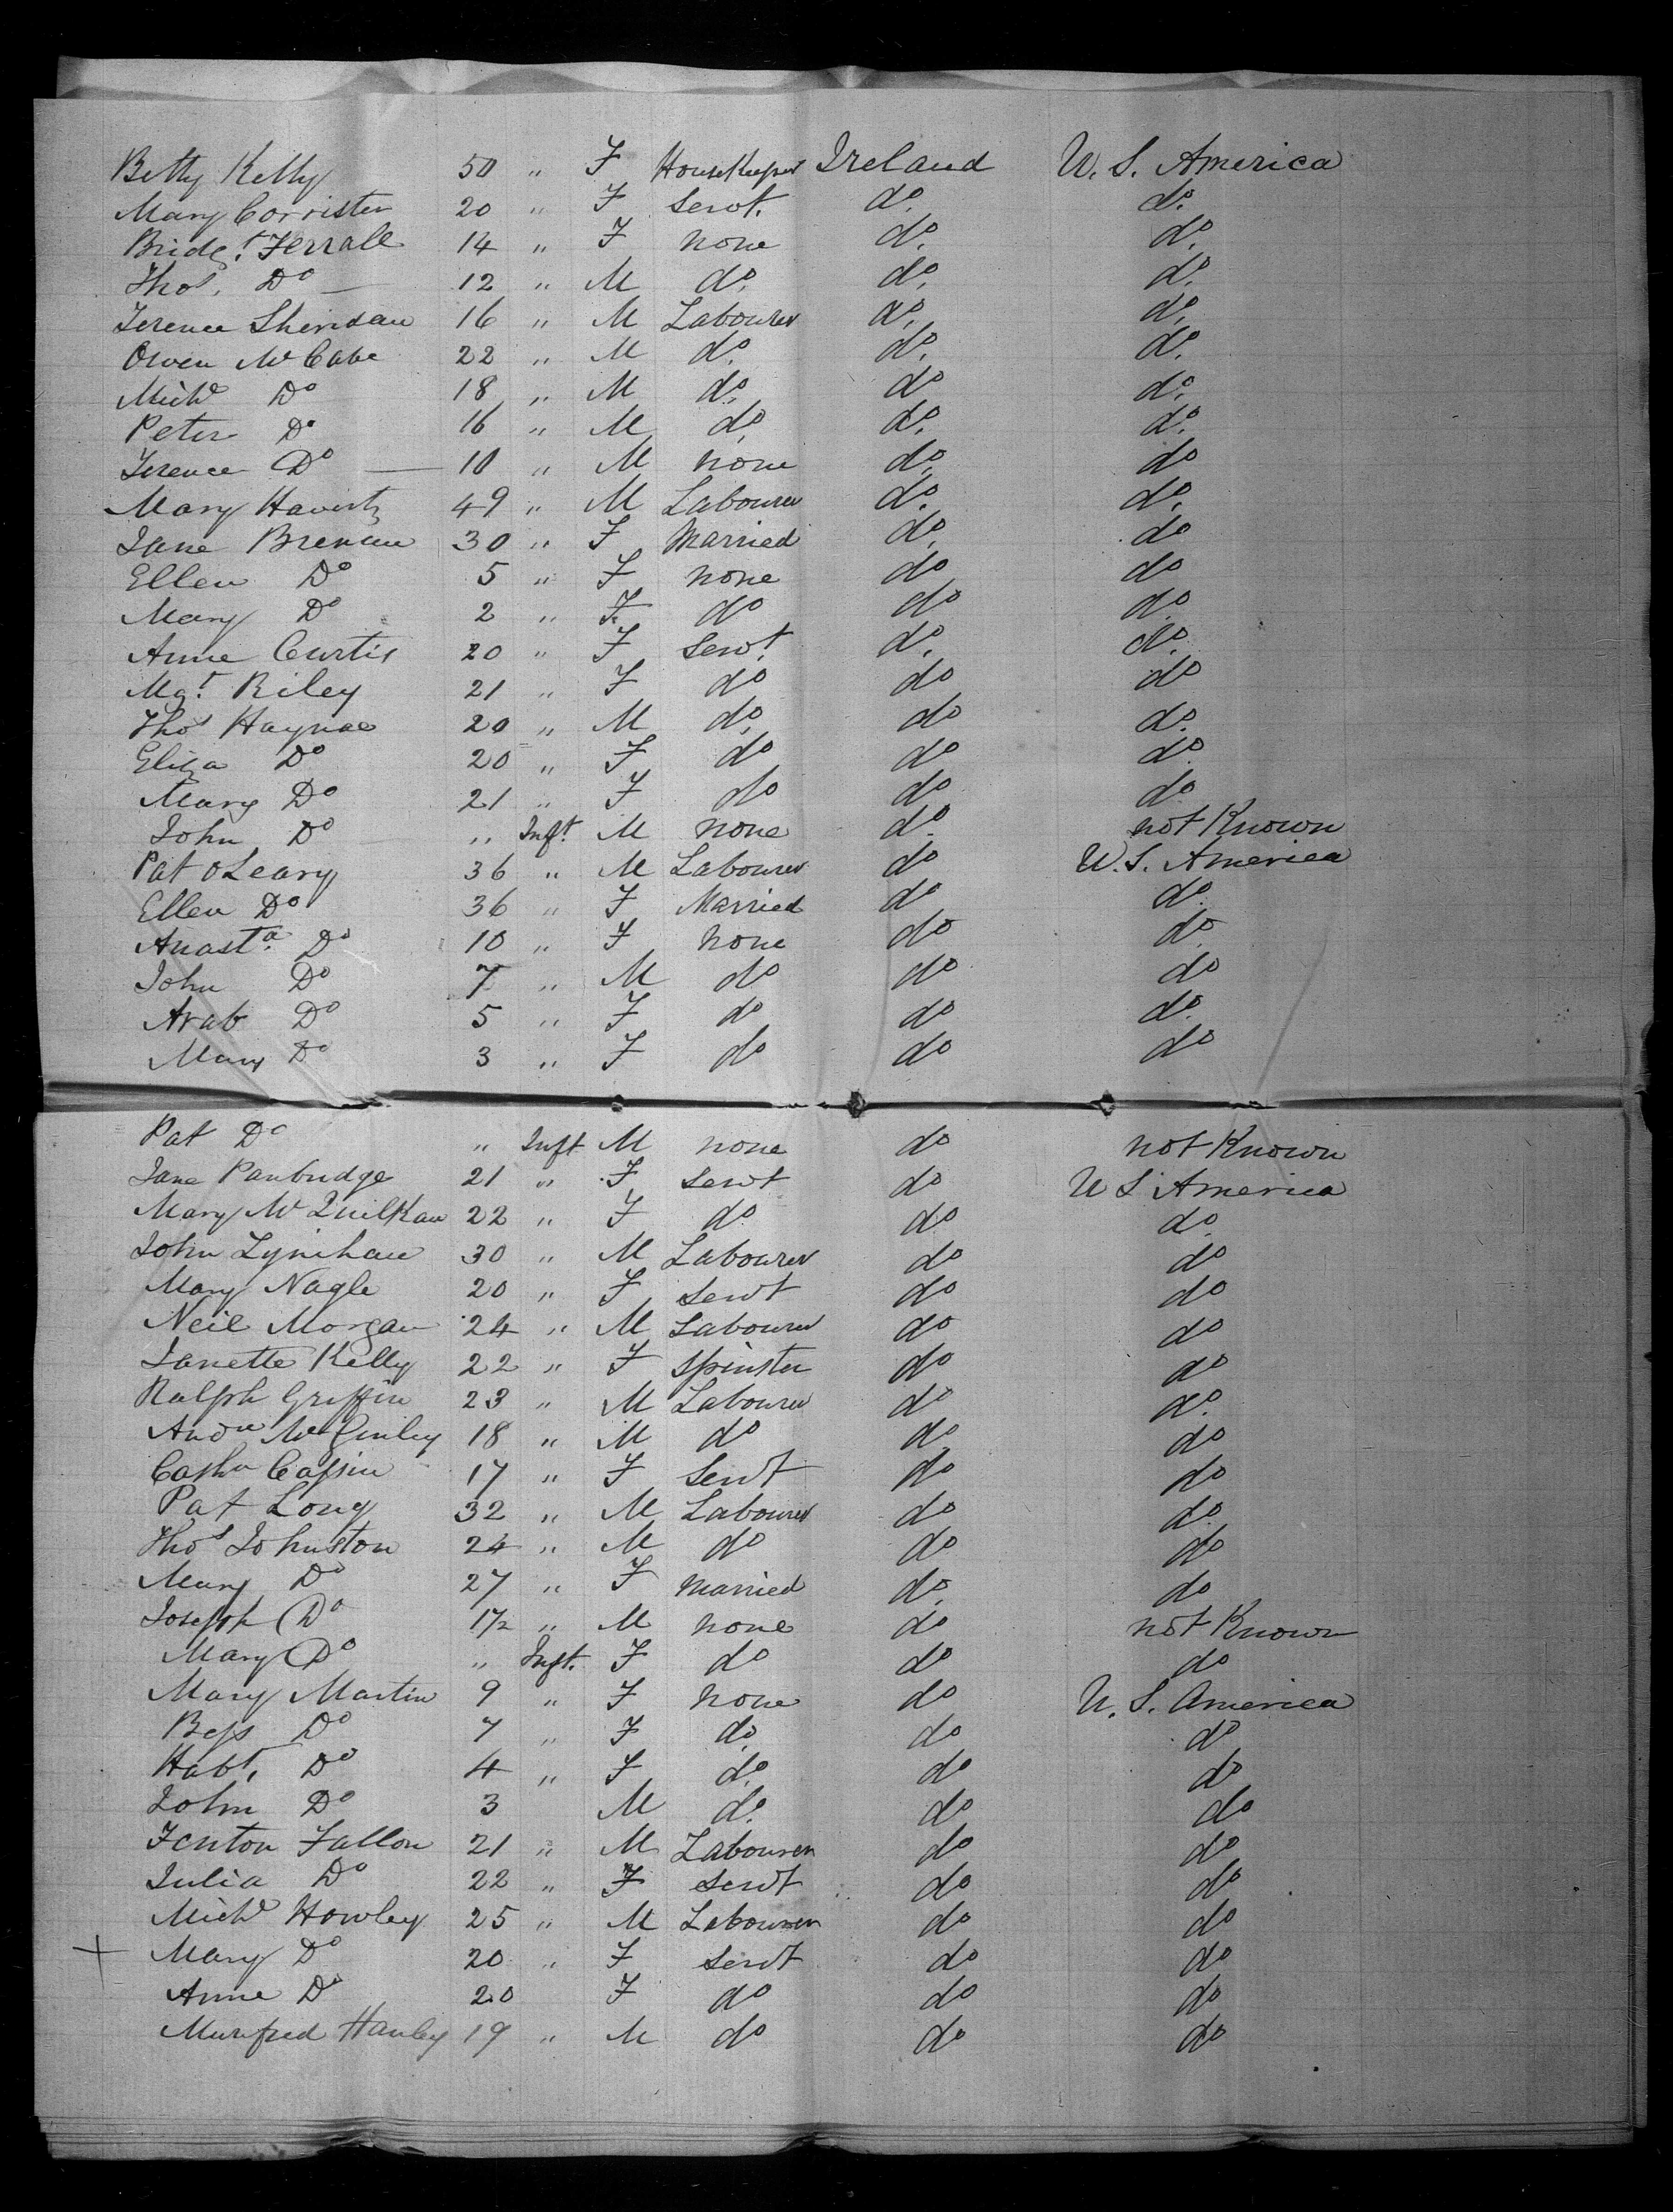 Betty Kelly 50 " F Housekeeper Ireland U. S. America
Mary Corrister 20 " F Servt. do. do.
Bridgt. Ferrall 14 " F none do. do.
Thos. Do 12 " M do. do. do.
Terence Sheridan 16 " M Labourer do. do.
Owen McCabe 22 " M do. do. do.
Michl Do 18 " M do. do do.
Peter Do 16 " M do. do. do.
Terence Do 10 " M none do. do
Mary 49 " M Labourer do. do.
Jane Brenan 30 " F Married do. do
Ellen Do 5 " F none do do
Mary Do 2 " F do do do.
Anne Curtis 20 " F Servt. do. do.
Mgt. Riley 21 " F do do do
Thos Haynae 20 " M do. do do.
Eliza Do 20 " F do do do.
Mary Do 21 " F do do do
John Do " Inft. M none do. not Known
Pat OLeary 36 " M Labourer do U.S. America
Ellen Do 36 " F Married do do.
Anasta. Do 10 " F none do do.
John Do 7 " M do do do
Arab Do 5 " F do do do.
Mary Do 3 " F do do do
Pat Do " Inft M none do not Known
Jane 21 " F Servt do U S America
Mary McQuilkan 22 " F do. do do.
John Lynihan 30 " M Labourer do do
Mary Nagle 20 " F Servt do do
Neil Morgan 24 " M Labourer do do
Janette Kelly 22 " F Spinster do do
Ralph Griffin 23 " M Labourer do do.
Andw McGinley 18 " M do do. do
Cathn Cassin 17 " F Servt do do
Pat Long 32 " M Labourer do do.
Thos Johnston 24 " M do do do
Mary Do 27 " F Married do. do
Joseph Do 1½ " M none do not Known
Mary Do " Inft. F do do do
Mary Martin 9 " F none do U. S. America
Bess Do 7 " F do. do do
Do 4 " F do. do do
John Do 3 M do. do do
Fenton Fallon 21 " M Labourer do do
Julia Do 22 " F Servt do do
Michl Howley 25 " M Labourer do do
+ Mary Do 20 " F Servt do do
Anne Do 20 F do do do
Hanley 19 " M do do do